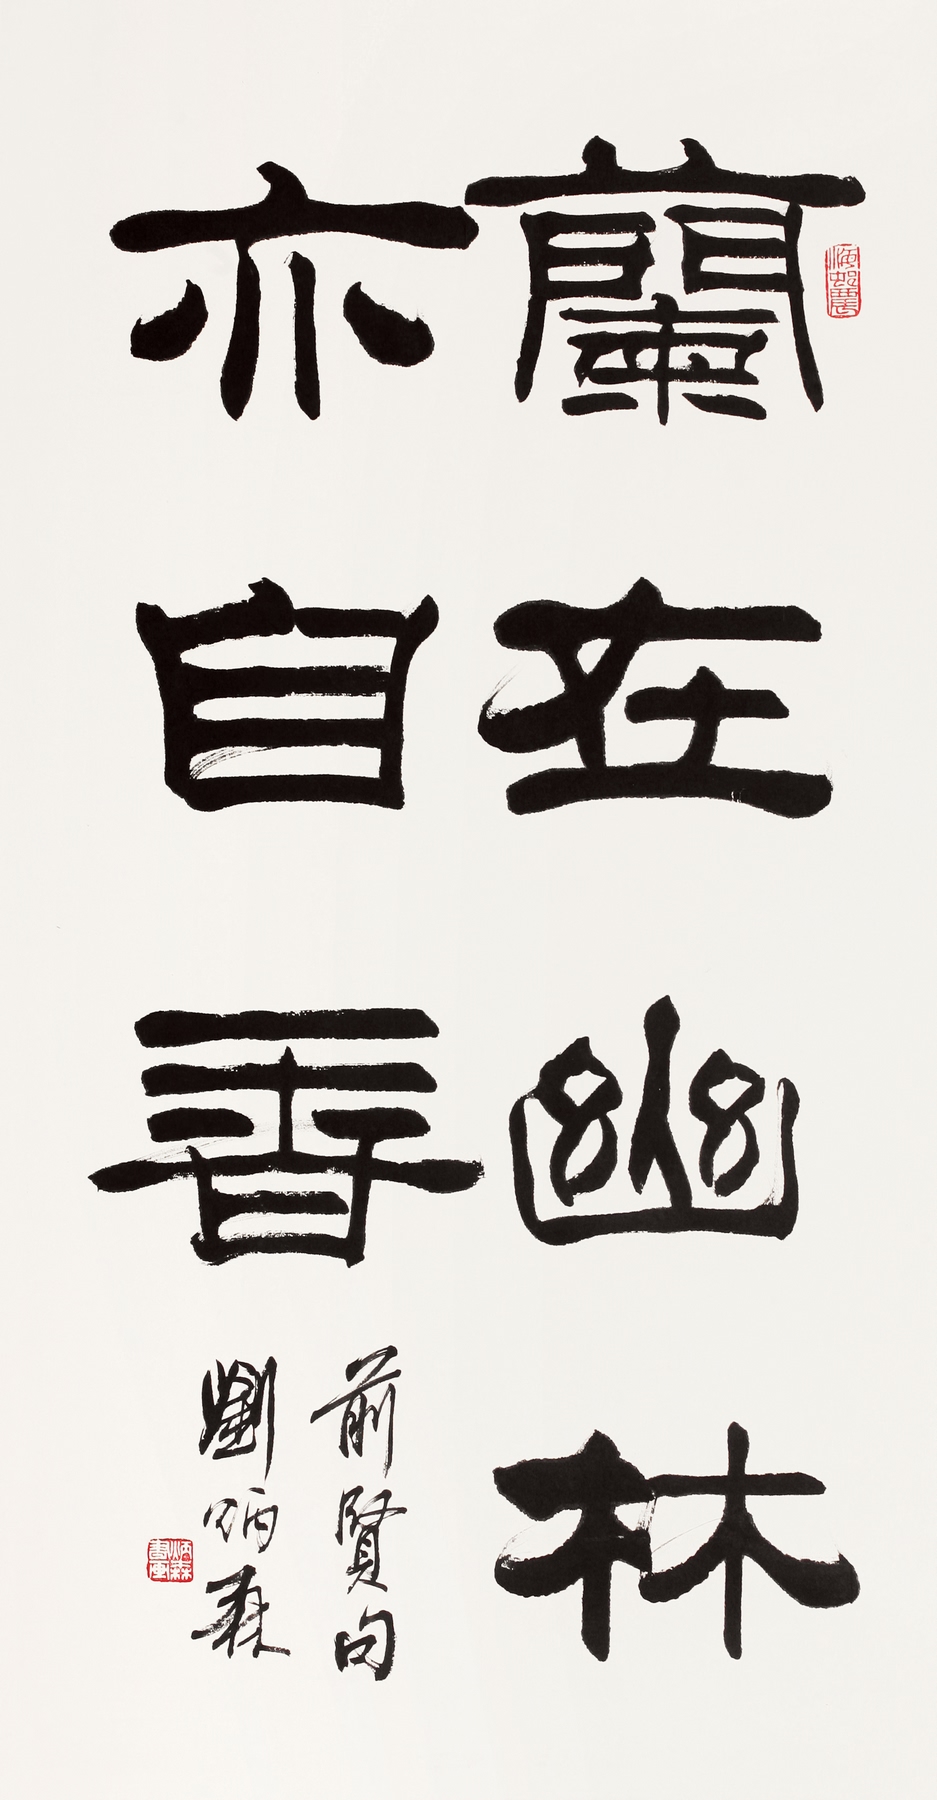 蘭在幽林
亦自香
前賢句
劉炳森
炳森書画